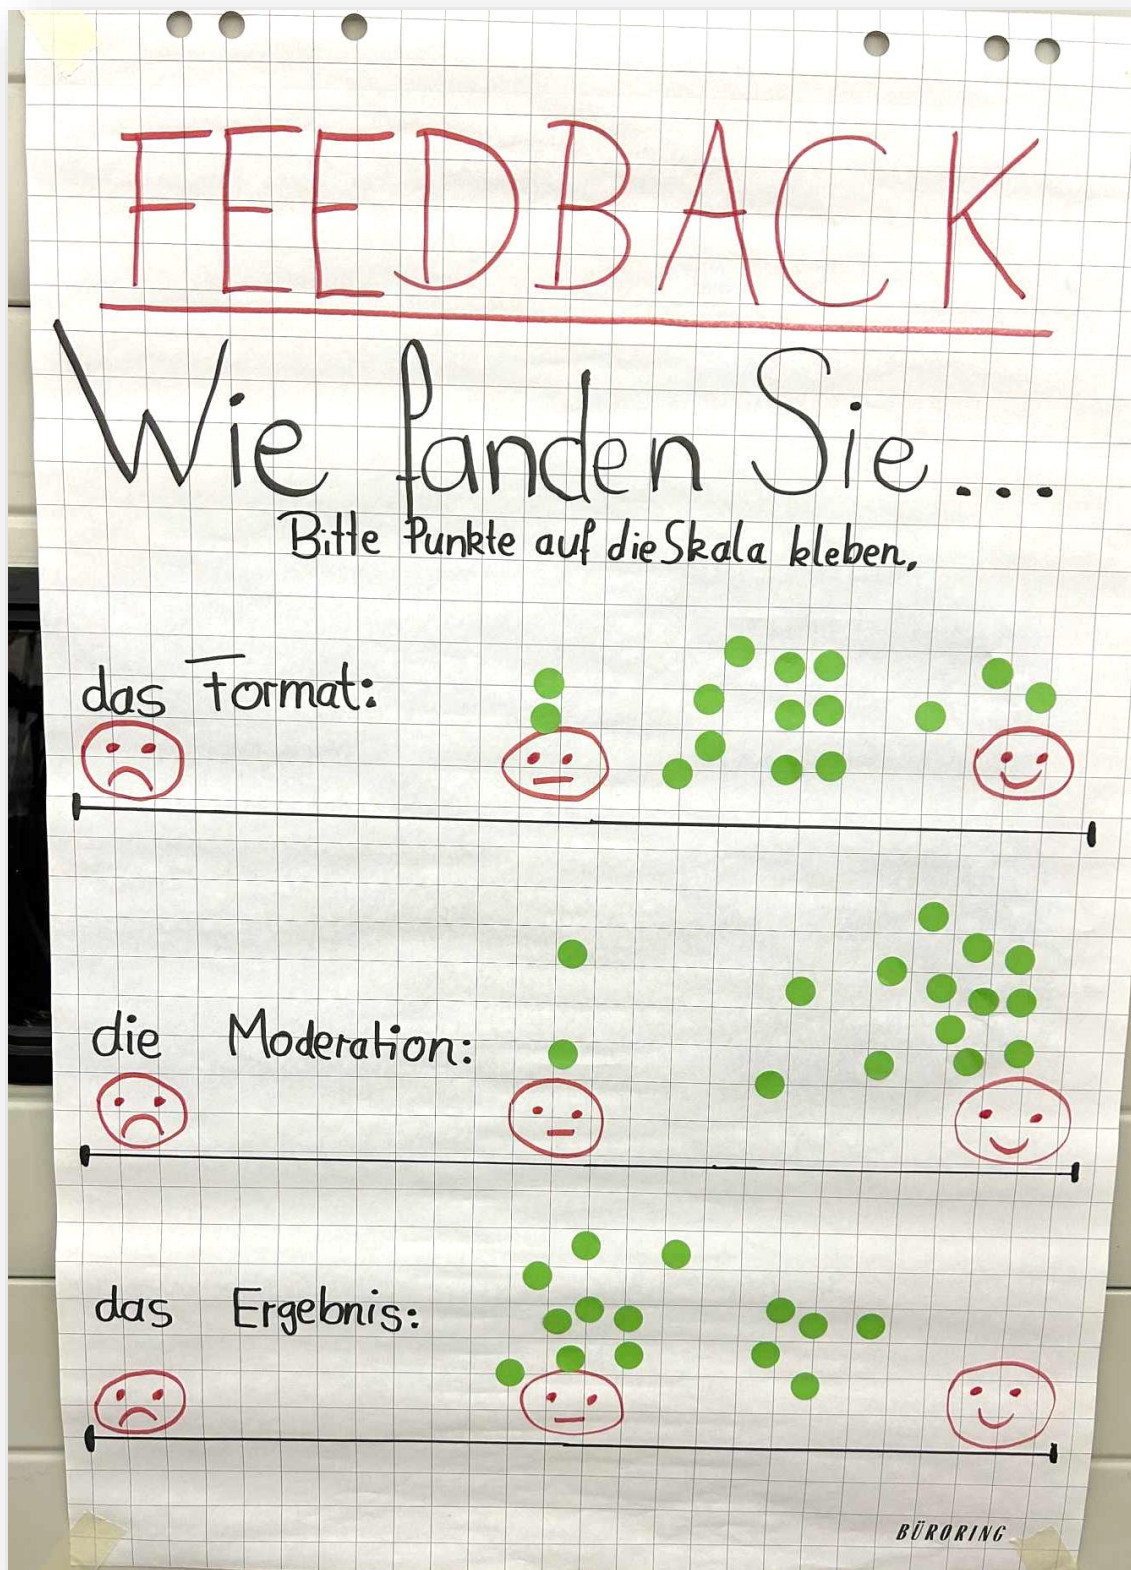 FEEDBACK
Wie fanden Sie...
Bitte Punkte auf die Skala kleben.
das Format:
die Moderation:
das Ergebnis:
BÜRORING